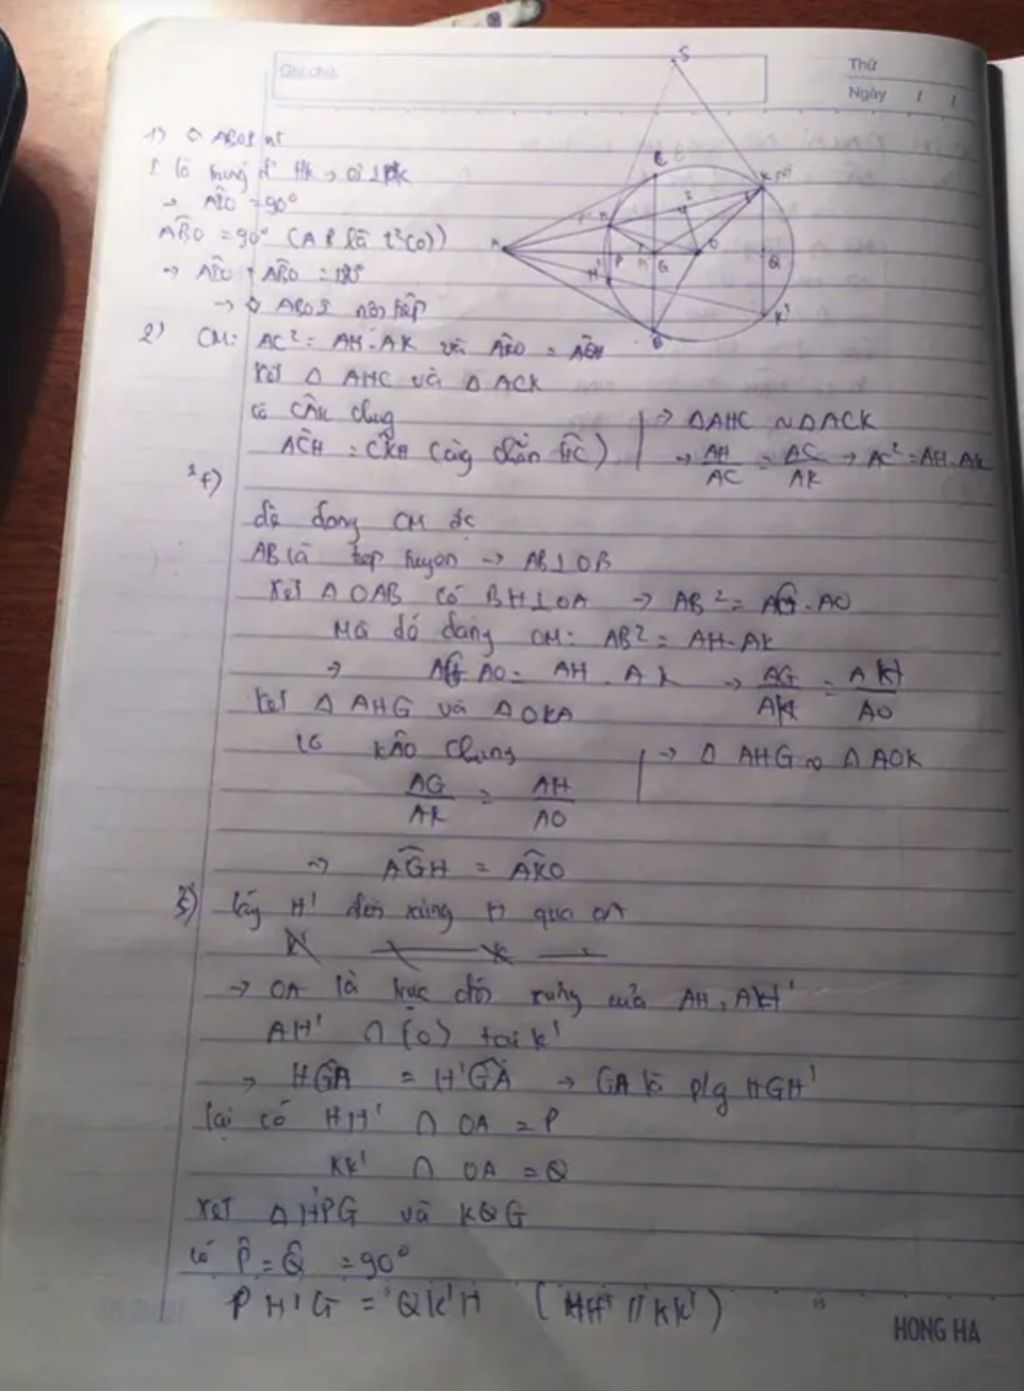 Ghi chú:
Thứ
Ngày / /
S
1) ◇ ABOI nt
I là trung đ' HK → OI ⊥ HK
→ AIO = 90°
ABO = 90° (AB là t²(O))
→ AIO + ABO = 180°
→ ◇ ABOI nội tiếp
2) CM: AC² = AH.AK và AKO = AGH
Xét Δ AHC và Δ ACK
có CAK chug
ACH = CKA (cùg chắn HC)
→ ΔAHC ~ ΔACK
→ AH/AC = AC/AK → AC² = AH.AK
dễ dàng CM đc
AB là tiếp tuyến → AB ⊥ OB
Xét Δ OAB có BH ⊥ OA → AB² = AG.AO
Mà dễ dàng CM: AB² = AH.AK
→ AG AO = AH . AK → AG/AK = AH/AO
Xét Δ AHG và Δ OKA
có KAO chung
AG/AK = AH/AO
→ Δ AHG ~ Δ AOK
→ AGH = AKO
3) Lấy H' đối xứng H qua OA
→ OA là trục đối xứng của AH, AH'
AH' ∩ (O) tại K'
→ HGA = H'GA → GA là p/g HGH'
Lại có HH' ∩ OA = P
KK' ∩ OA = Q
Xét Δ H'PG và KQG
có P = Q = 90°
PH'G = QK'H (HH' // KK')
15
HONG HA